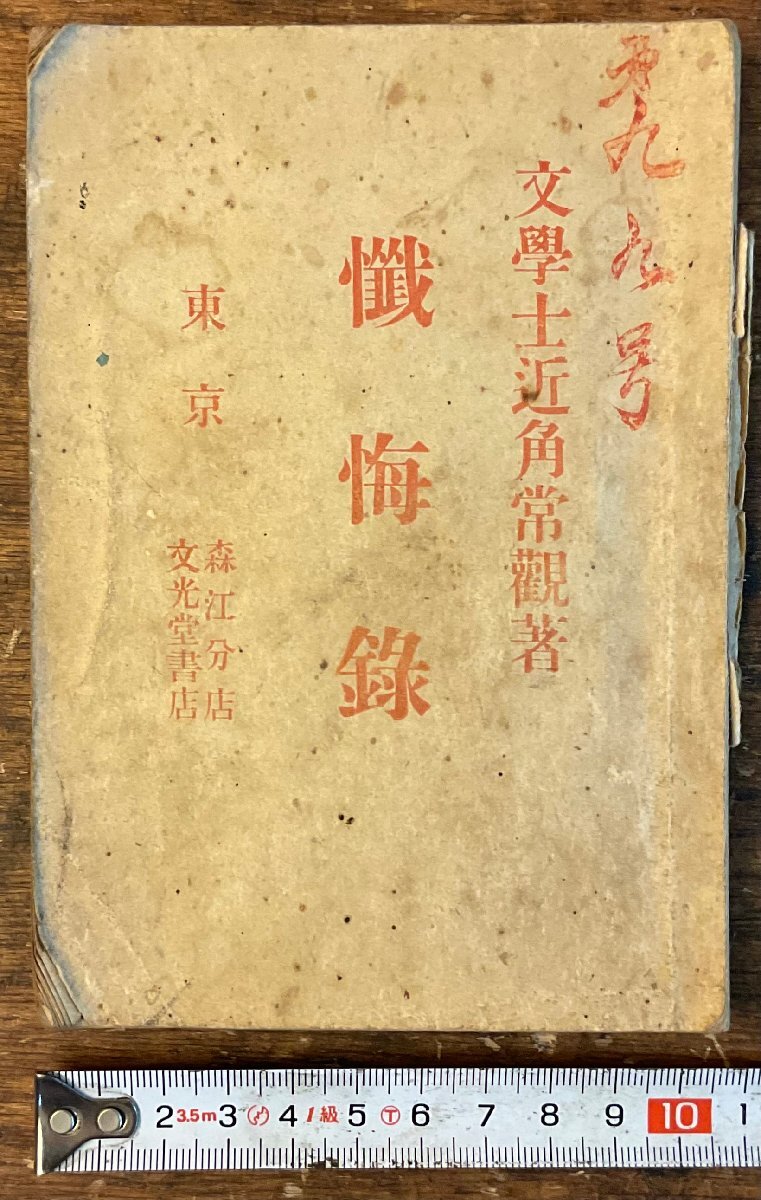 第九九号
文學士近角常觀著
懺悔錄
東京
森江分店
文光堂書店
2 3.5m 3 4 1級 5 6 7 8 9 10 1